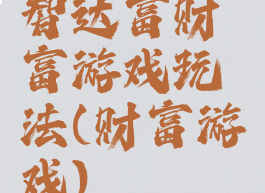 智达富财
富游戏玩
法(财富游
戏)